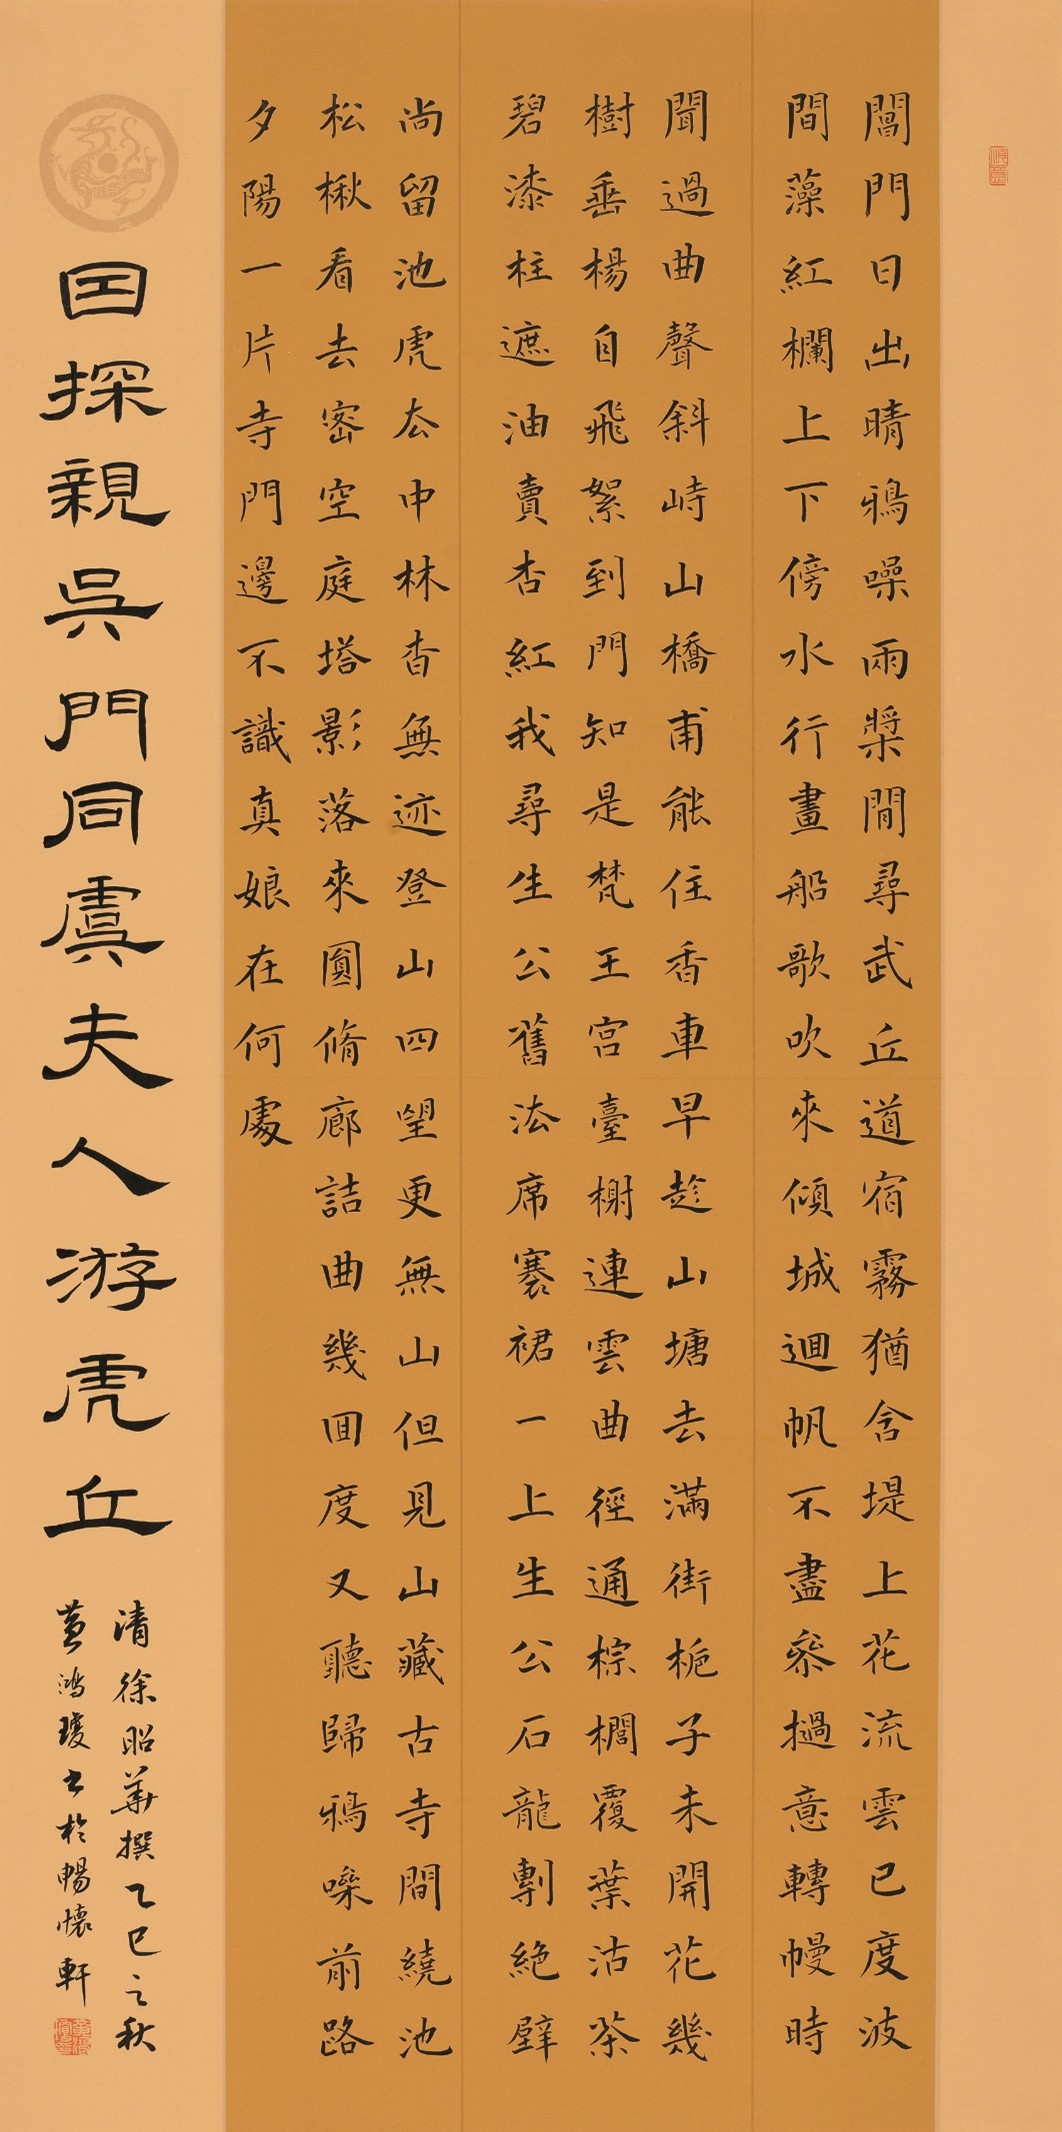 閶門日出晴鴉噪兩槳間尋武丘道宿霧猶含堤上花流雲已度波
間藻紅欄上下傍水行畫船歌吹來傾城迴帆不盡參撾意轉幔時
聞過曲聲斜峙山橋甫能住香車早趁山塘去滿街梔子未開花幾
樹垂楊自飛絮到門知是梵王宮臺榭連雲曲徑通棕櫚覆葉沽茶
碧漆柱遮油賣杏紅我尋生公舊法席褰裙一上生公石龍剸絕壁
尚留池虎去中林杳無迹登山四望更無山但見山藏古寺間繞池
松楸看去密空庭塔影落來圓脩廊詰曲幾回度又聽歸鴉噪前路
夕陽一片寺門邊不識真娘在何處
囙探親吳門同虞夫人游虎丘
清徐昭華撰乙巳之秋
黃鴻瓊書於暢懷軒